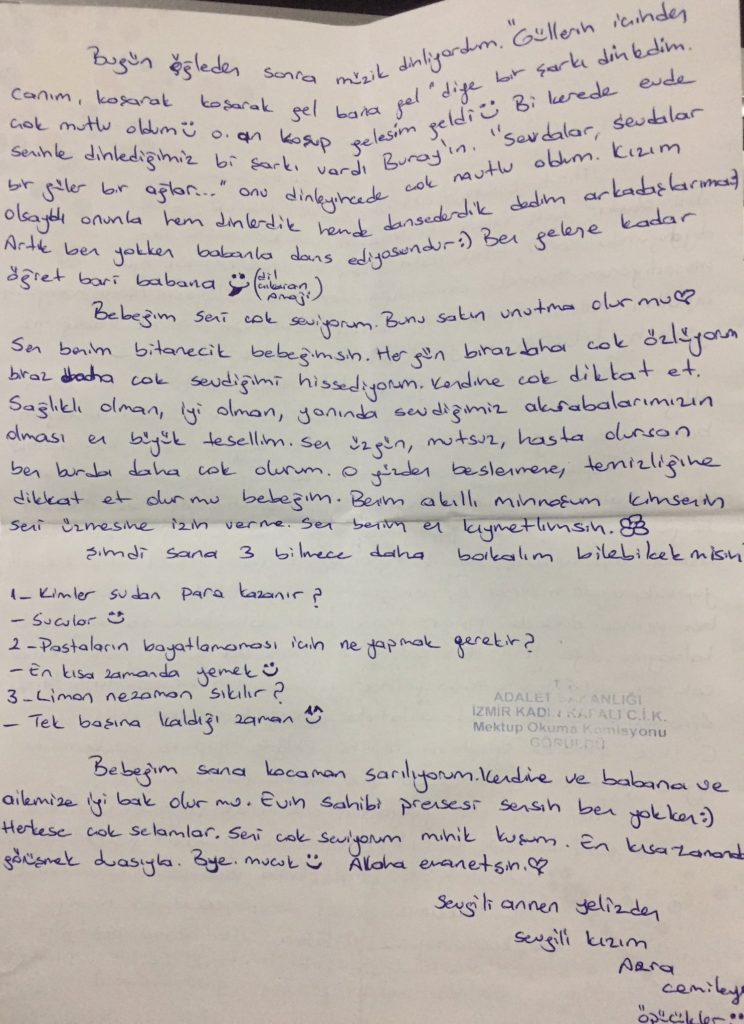 Bugün öğleden sonra müzik dinliyordum. "Güllerin içinden
canım, koşarak koşarak gel bana gel" diye bir şarkı dinledim.
çok mutlu oldum o an koşup gelesim geldi Bi kerede evde
seninle dinlediğimiz bi şarkı vardı Buray'ın. "Sevdalar, sevdalar
bir güler bir ağlar..." onu dinleyincede çok mutlu oldum. Kızım
olsaydı onunla hem dinlerdik hemde dansederdik dedim arkadaşlarıma:)
Artık ben yokken babanla dans ediyosundur:) Ben gelene kadar
öğret bari babana (dil
çıkaran
emoji)
Bebeğim seni çok seviyorum. Bunu sakın unutma olur mu♡
Sen benim bitanecik bebeğimsin. Her gün biraz daha çok özlüyorum
biraz daha çok sevdiğimi hissediyorum. Kendine çok dikkat et.
Sağlıklı olman, iyi olman, yanında sevdiğimiz akrabalarımızın
olması en büyük tesellim. Sen üzgün, mutsuz, hasta olursan
ben burda daha çok olurum. O yüzden beslenmene, temizliğine
dikkat et olur mu bebeğim. Benim akıllı minnoşum kimsenin
seni üzmesine izin verme. Sen benim en kıymetlimsin.
Şimdi sana 3 bilmece daha bakalım bilebilcek misin
1- Kimler sudan para kazanır?
- Sucular
2- Pastaların bayatlamaması için ne yapmak gerekir?
- En kısa zamanda yemek
3- Limon nezaman sıkılır?
- Tek başına kaldığı zaman
ADALET BAKANLIĞI
İZMİR KADIN KAPALI C.İ.K.
Mektup Okuma Komisyonu
GÖRÜLDÜ
Bebeğim sana kocaman sarılıyorum. Kendine ve babana ve
ailemize iyi bak olur mu. Evin sahibi prensesi sensin ben yokken:)
Herkese çok selamlar. Seni çok seviyorum minik kuşum. En kısa zamanda
görüşmek duasıyla. Bye. mucuk Allaha emanetsin.♡
Sevgili annen Yelizden
sevgili kızım
Azra
Cemileye
öpücükler